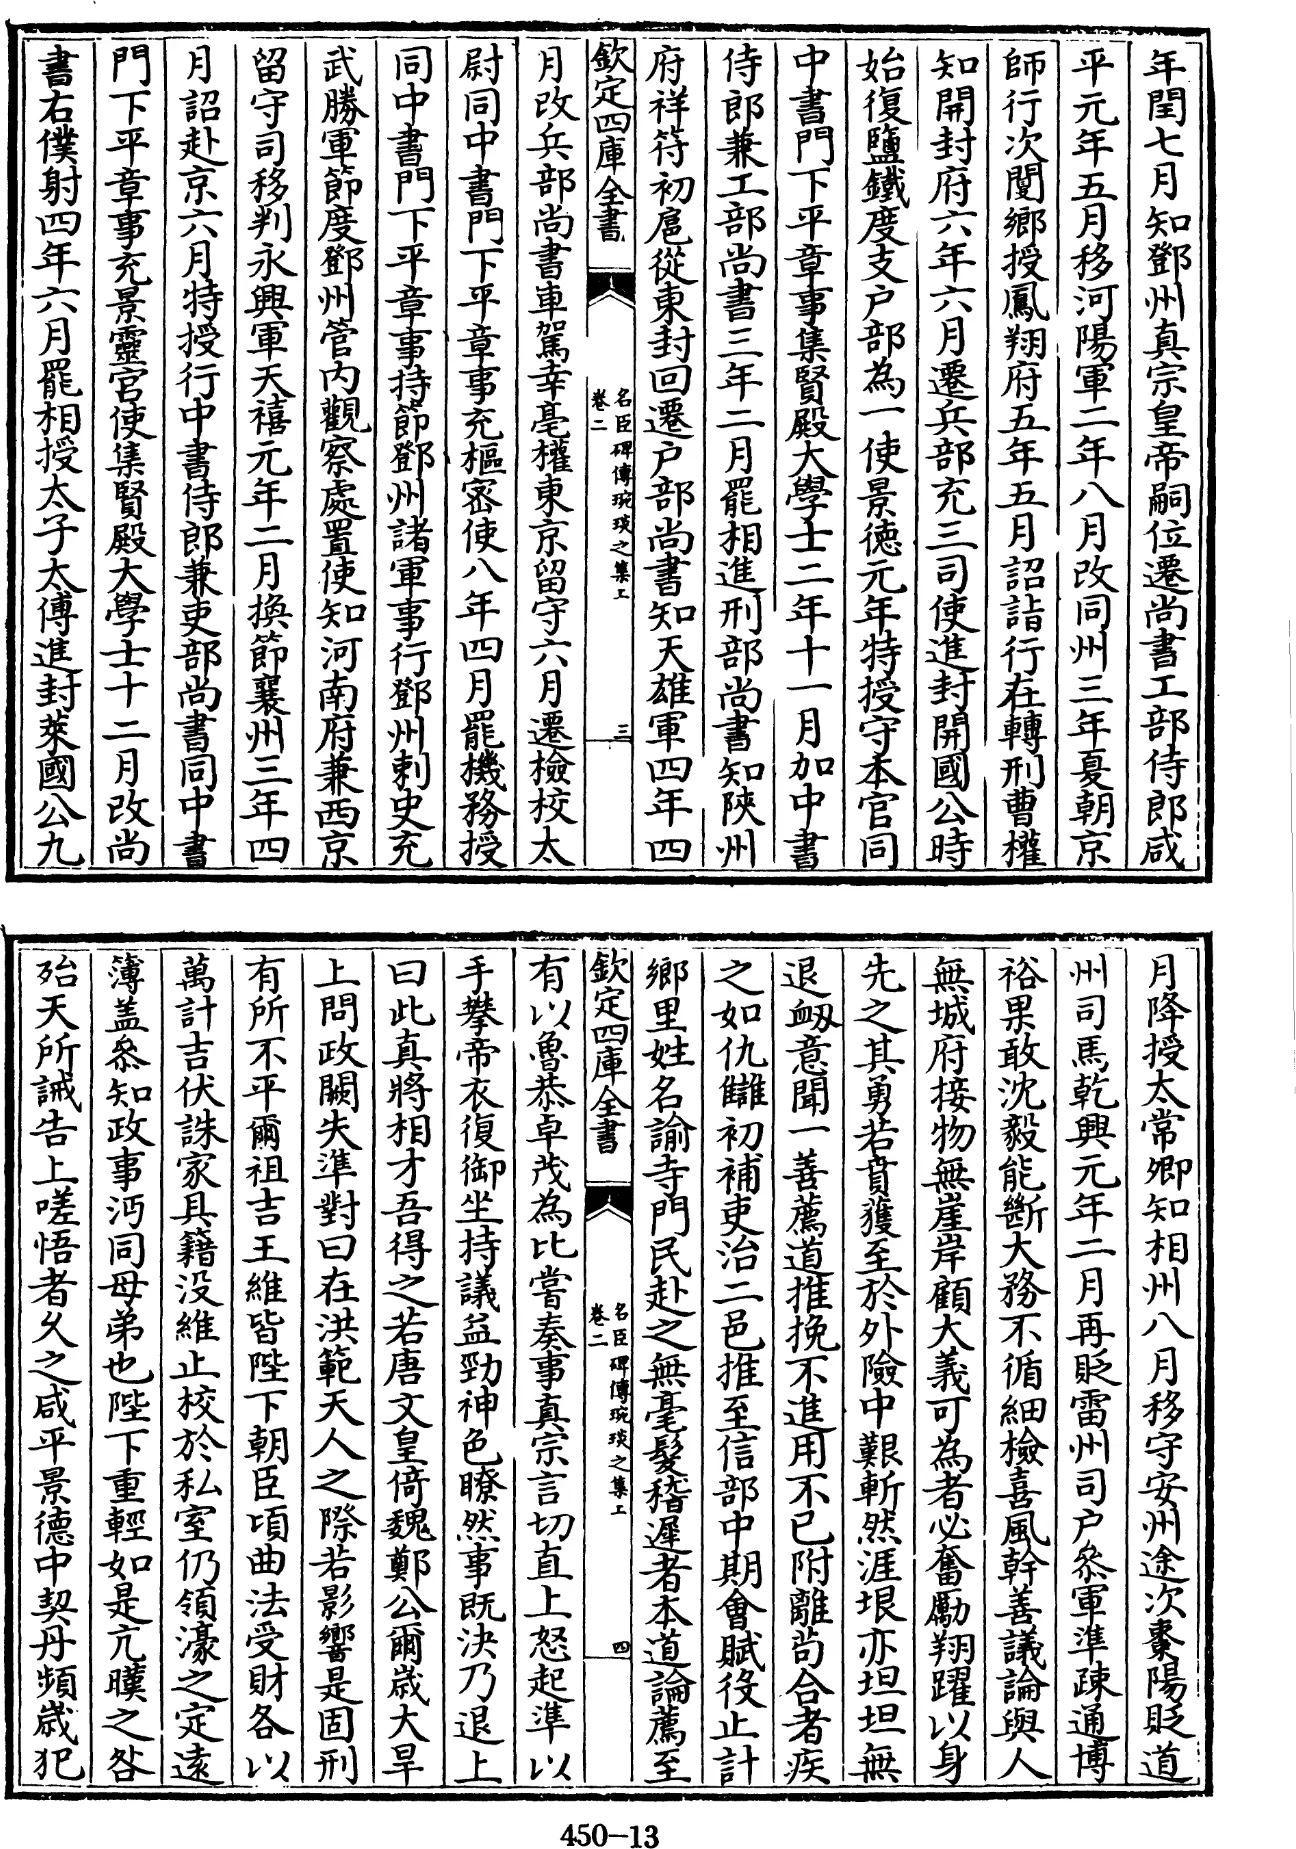 年閏七月知鄧州真宗皇帝嗣位遷尚書工部侍郎咸
平元年五月移河陽軍二年八月改同州三年夏朝京
師行次閿鄉授鳳翔府五年五月詔詣行在轉刑曹權
知開封府六年六月遷兵部充三司使進封開國公時
始復鹽鐵度支户部為一使景德元年特授守本官同
中書門下平章事集賢殿大學士二年十一月加中書
侍郎兼工部尚書三年二月罷相進刑部尚書知陝州
府祥符初扈從東封回遷户部尚書知天雄軍四年四
欽定四庫全書
名臣碑傳琬琰之集上
卷二
三
月改兵部尚書車駕幸亳權東京留守六月遷檢校太
尉同中書門下平章事充樞密使八年四月罷機務授
同中書門下平章事持節鄧州諸軍事行鄧州刺史充
武勝軍節度鄧州管内觀察處置使知河南府兼西京
留守司移判永興軍天禧元年二月換節襄州三年四
月詔赴京六月特授行中書侍郎兼吏部尚書同中書
門下平章事充景靈宫使集賢殿大學士十二月改尚
書右僕射四年六月罷相授太子太傅進封萊國公九
月降授太常卿知相州八月移守安州途次棗陽貶道
州司馬乾興元年二月再貶雷州司户叅軍準疎通博
裕果敢沈毅能斷大務不循細檢喜風幹善議論與人
無城府接物無崖岸顧大義可為者必奮勵翔躍以身
先之其勇若賁獲至於外險中艱斬然涯垠亦坦坦無
退衂意聞一善薦道推挽不進用不已附離茍合者疾
之如仇讎初補吏治二邑推至信部中期會賦役止計
鄉里姓名諭寺門民赴之無毫髮稽遲者本道論薦至
欽定四庫全書
名臣碑傳琬琰之集上
卷二
四
有以魯恭卓茂為比嘗奏事真宗言切直上怒起準以
手攀帝衣復御坐持議益勁神色瞭然事既決乃退上
曰此真將相才吾得之若唐文皇倚魏鄭公爾歲大旱
上問政闕失準對曰在洪範天人之際若影響是固刑
有所不平爾祖吉王維皆陛下朝臣頃曲法受財各以
萬計吉伏誅家具籍没維止校於私室仍領濠之定遠
簿盖叅知政事沔同母弟也陛下重輕如是亢暵之咎
殆天所誡告上嗟悟者久之咸平景德中契丹頻歲犯
450-13